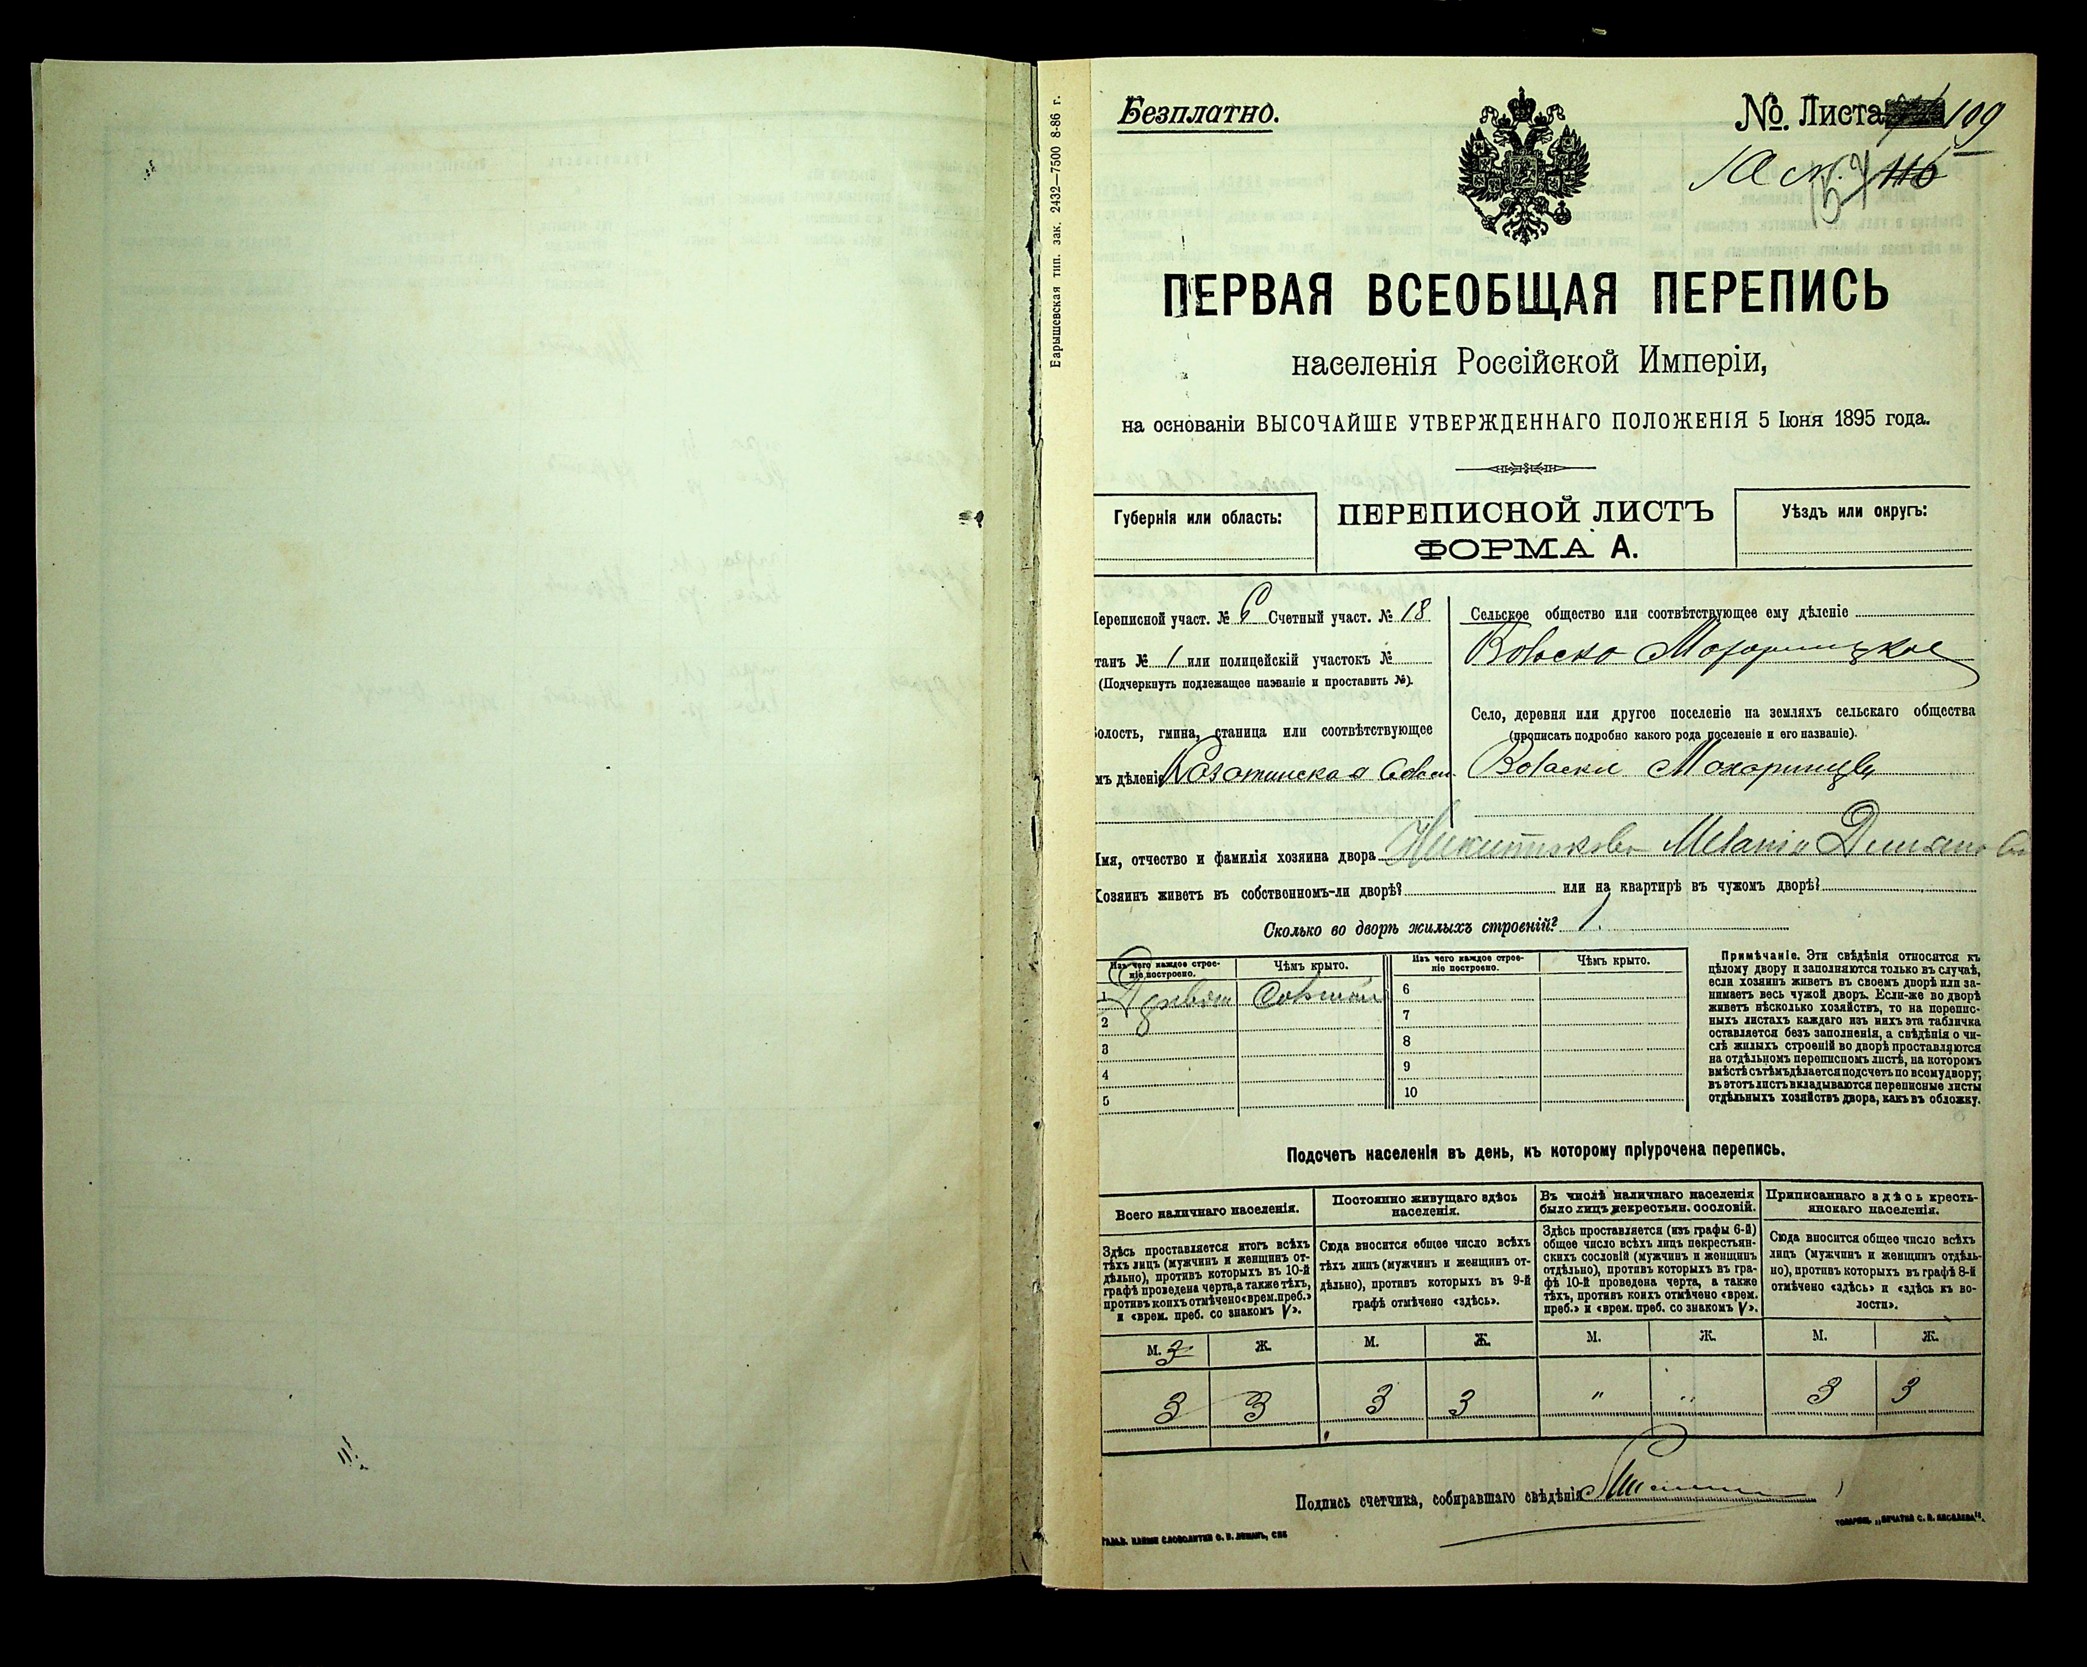 Барышевская тип. зак. 2432—7500 8-86 г.
Безплатно.
№ Листа 109
116
ПЕРВАЯ ВСЕОБЩАЯ ПЕРЕПИСЬ
населенія Россійской Имперіи,
на основаніи ВЫСОЧАЙШЕ УТВЕРЖДЕННАГО ПОЛОЖЕНІЯ 5 Іюня 1895 года.
Губернія или область:
ПЕРЕПИСНОЙ ЛИСТЪ
ФОРМА А.
Уѣздъ или округъ:
Переписной участ. № 6 Счетный участ. № 18
танъ № 1 или полицейскій участокъ №
(Подчеркнуть подлежащее названіе и проставить №).
олость, гмина, станица или соотвѣтствующее
мъ дѣленіе
Сельское общество или соотвѣтствующее ему дѣленіе
Село, деревня или другое поселеніе на земляхъ сельскаго общества
(прописать подробно какого рода поселеніе и его названіе).
Махаринцы
Имя, отчество и фамилія хозяина двора
Хозяинъ живетъ въ собственномъ-ли дворѣ? или на квартирѣ въ чужомъ дворѣ?
Сколько во дворѣ жилыхъ строеній? 1.
Изъ чего каждое строе-
ніе построено.
Чѣмъ крыто.
1
2
3
4
5
Изъ чего каждое строе-
ніе построено.
Чѣмъ крыто.
6
7
8
9
10
Примѣчаніе. Эти свѣдѣнія относятся къ
цѣлому двору и заполняются только въ случаѣ,
если хозяинъ живетъ въ своемъ дворѣ или за-
нимаетъ весь чужой дворъ. Если-же во дворѣ
живетъ нѣсколько хозяйствъ, то на перепис-
ныхъ листахъ каждаго изъ нихъ эта табличка
оставляется безъ заполненія, а свѣдѣнія о чи-
слѣ жилыхъ строеній во дворѣ проставляются
на отдѣльномъ переписномъ листѣ, на которомъ
вмѣстѣ съ тѣмъ дѣлается подсчетъ по всему двору;
въ этотъ листъ вкладываются переписные листы
отдѣльныхъ хозяйствъ двора, какъ въ обложку.
Подсчетъ населенія въ день, къ которому пріурочена перепись.
Всего наличнаго населенія.
Здѣсь проставляется итогъ всѣхъ
тѣхъ лицъ (мужчинъ и женщинъ от-
дѣльно), противъ которыхъ въ 10-й
графѣ проведена черта, а также тѣхъ,
противъ коихъ отмѣчено «врем. преб.»
и «врем. преб. со знакомъ V».
М. Ж.
3 3
Постоянно живущаго здѣсь
населенія.
Сюда вносится общее число всѣхъ
тѣхъ лицъ (мужчинъ и женщинъ от-
дѣльно), противъ которыхъ въ 9-й
графѣ отмѣчено «здѣсь».
М. Ж.
3 3
Въ числѣ наличнаго населенія
было лицъ некрестьян. сословій.
Здѣсь проставляется (изъ графы 6-й)
общее число всѣхъ лицъ некрестьян-
скихъ сословій (мужчинъ и женщинъ
отдѣльно), противъ которыхъ въ гра-
фѣ 10-й проведена черта, а также
тѣхъ, противъ коихъ отмѣчено «врем.
преб.» и «врем. преб. со знакомъ V».
М. Ж.
" "
Приписаннаго здѣсь кресть-
янскаго населенія.
Сюда вносится общее число всѣхъ
лицъ (мужчинъ и женщинъ отдѣль-
но), противъ которыхъ въ графѣ 8-й
отмѣчено «здѣсь» и «здѣсь къ во-
лости».
М. Ж.
3 3
Подпись счетчика, собиравшаго свѣдѣнія